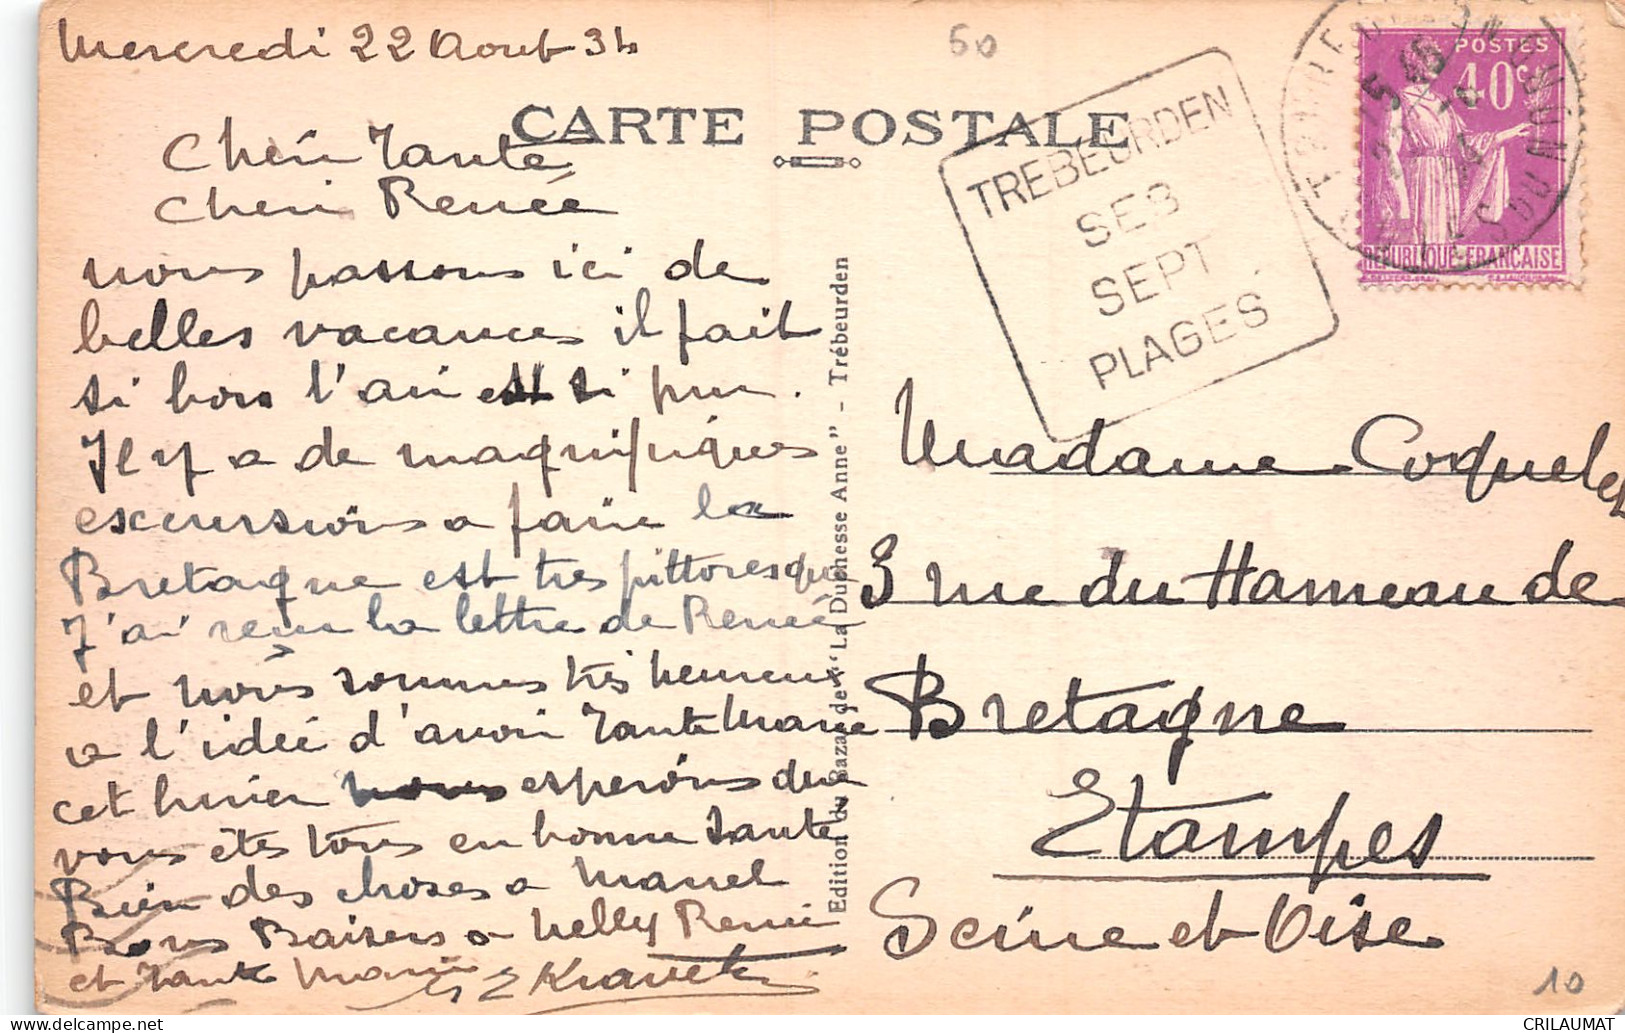 Mercredi 22 Aout 34
50
CARTE POSTALE
TREBEURDEN
SES
SEPT
PLAGES
POSTES
40c
REPUBLIQUE FRANCAISE
Cheri Tante
Cheri Renée
nous passons ici de
belles vacances il fait
si bon l'air est si pur.
Il y a de magnifiques
excursions a faire la
Bretagne est tres pittoresque
J'ai reçu la lettre de Renée
et nous sommes très heureux
a l'idée d'avoir Tante Marie
cet hiver nous esperons que
vous êtes tous en bonne santé
Bien des choses a Marcel
Bons Baisers a Nelly Renée
et Tante Marie
Edition du Bazar de "La Duchesse Anne" - Trébeurden
Madame Coquelet
3 rue du Hameau de
Bretagne
Etampes
Seine et Oise
10
CRILAUMAT